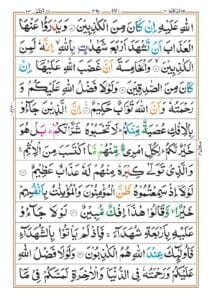 اللّٰهِ عَلَيْهِ اِنْ كَانَ مِنَ الْكٰذِبِيْنَ ۝ وَيَدْرَؤُا عَنْهَا
الْعَذَابَ اَنْ تَشْهَدَ اَرْبَعَ شَهٰدٰتٍۭ بِاللّٰهِ ۙ اِنَّهٗ لَمِنَ
الْكٰذِبِيْنَ ۝ وَالْخَامِسَةَ اَنَّ غَضَبَ اللّٰهِ عَلَيْهَاۤ اِنْ
كَانَ مِنَ الصّٰدِقِيْنَ ۝ وَلَوْلَا فَضْلُ اللّٰهِ عَلَيْكُمْ وَ
رَحْمَتُهٗ وَاَنَّ اللّٰهَ تَوَّابٌ حَكِيْمٌ ۝ اِنَّ الَّذِيْنَ جَآءُوْ
بِالْاِفْكِ عُصْبَةٌ مِّنْكُمْ ؕ لَا تَحْسَبُوْهُ شَرًّا لَّكُمْ ؕ بَلْ هُوَ
خَيْرٌ لَّكُمْ ؕ لِكُلِّ امْرِئٍ مِّنْهُمْ مَّا اكْتَسَبَ مِنَ الْاِثْمِ ۚ
وَالَّذِيْ تَوَلّٰى كِبْرَهٗ مِنْهُمْ لَهٗ عَذَابٌ عَظِيْمٌ ۝
لَوْلَاۤ اِذْ سَمِعْتُمُوْهُ ظَنَّ الْمُؤْمِنُوْنَ وَالْمُؤْمِنٰتُ بِاَنْفُسِهِمْ
خَيْرًا ۙ وَّقَالُوْا هٰذَاۤ اِفْكٌ مُّبِيْنٌ ۝ لَوْلَا جَآءُوْ
عَلَيْهِ بِاَرْبَعَةِ شُهَدَآءَ ۚ فَاِذْ لَمْ يَاْتُوْا بِالشُّهَدَآءِ
فَاُولٰٓئِكَ عِنْدَ اللّٰهِ هُمُ الْكٰذِبُوْنَ ۝ وَلَوْلَا فَضْلُ اللّٰهِ
عَلَيْكُمْ وَرَحْمَتُهٗ فِي الدُّنْيَا وَالْاٰخِرَةِ لَمَسَّكُمْ فِيْ مَاۤ